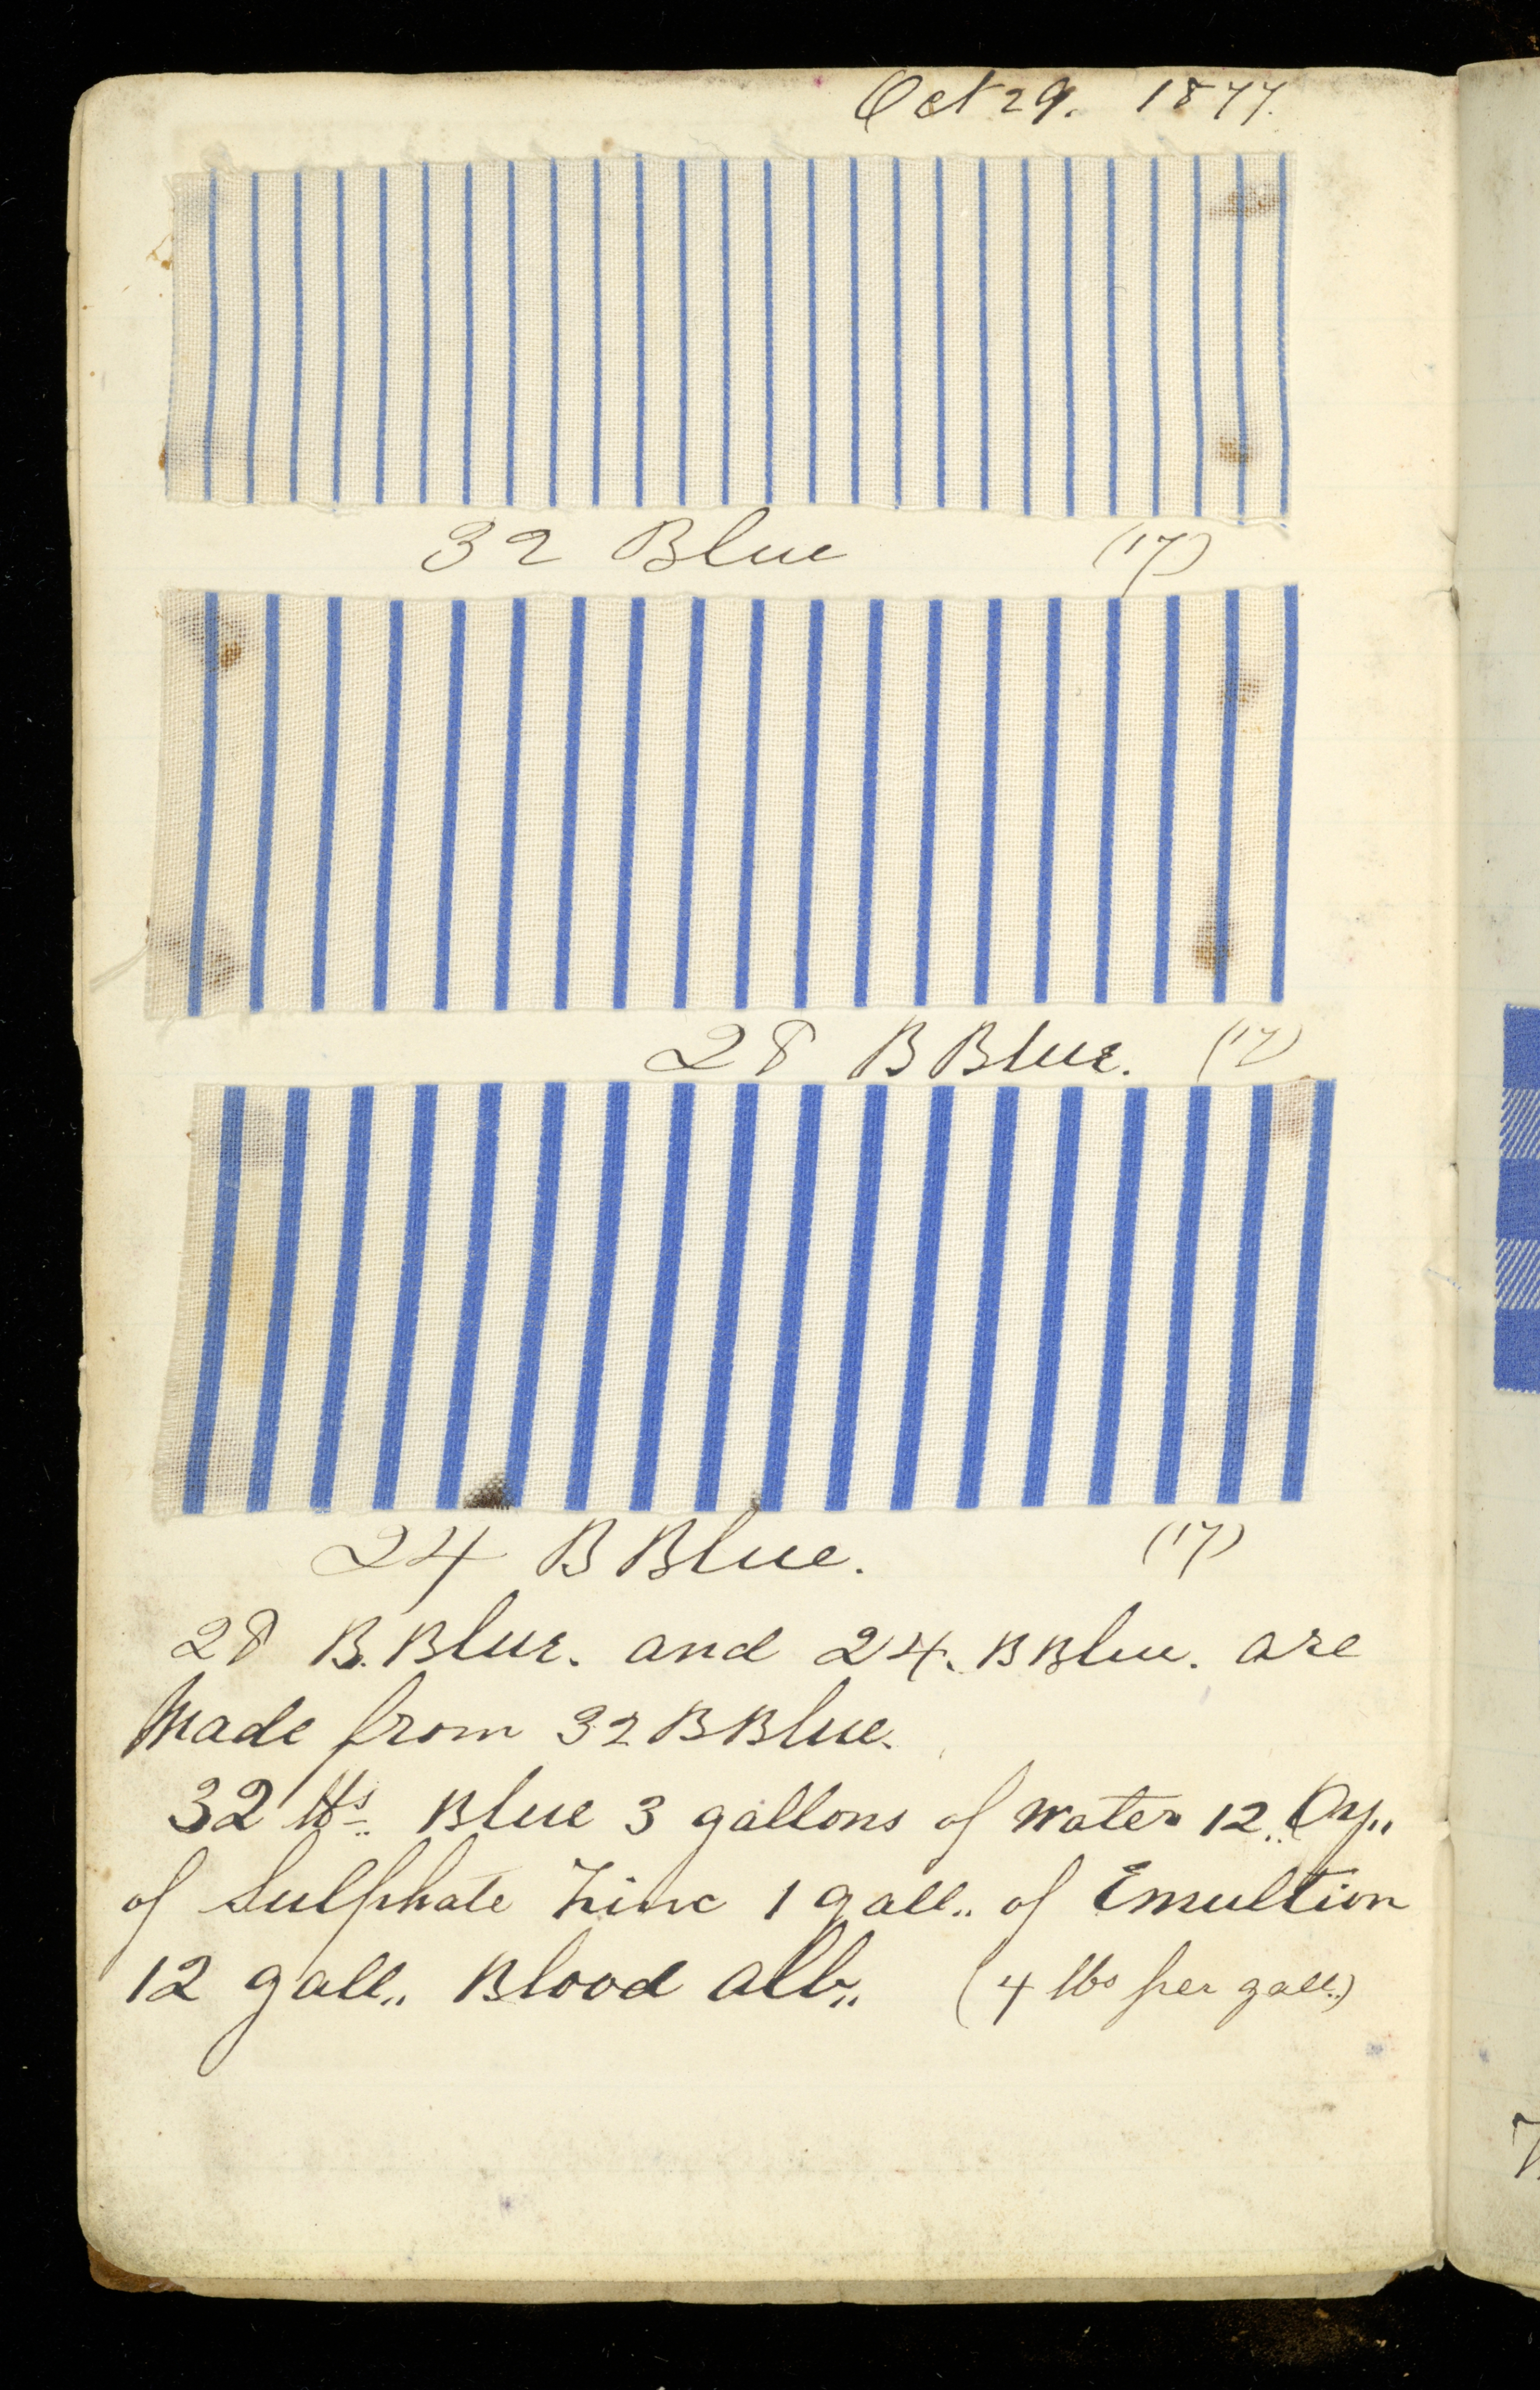 Oct 29. 1877.
32 Blue (17)
28 B Blue. (17)
24 B Blue. (17)
28 B. Blue. and 24. B Blue. are
Made from 32 B Blue.
32 lbs. Blue 3 gallons of Water 12.. Oz..
of Sulphate Zinc 1 gall.. of Emultion
12 gall.. Blood alb.. (4 lbs per gall..)